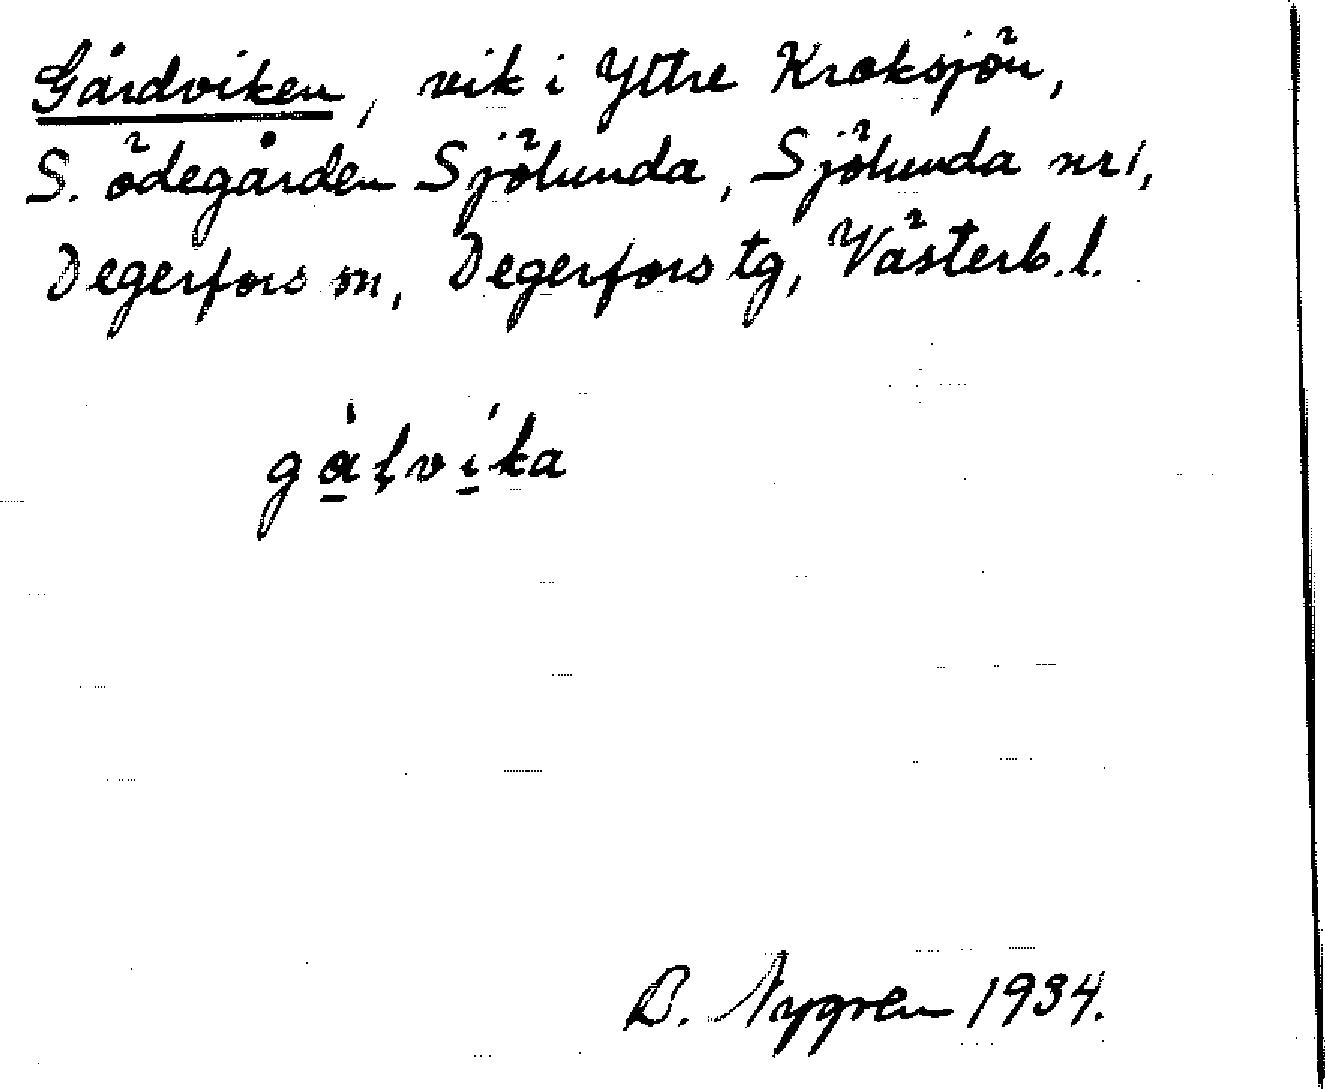 Gårdviken, vik i Yttre Kroksjön,
S. ödegården Sjölunda, Sjölunda nr 1,
Degerfors sn, Degerfors tg, Västerb. l.
gàl̥víka
B. Nygren 1934.